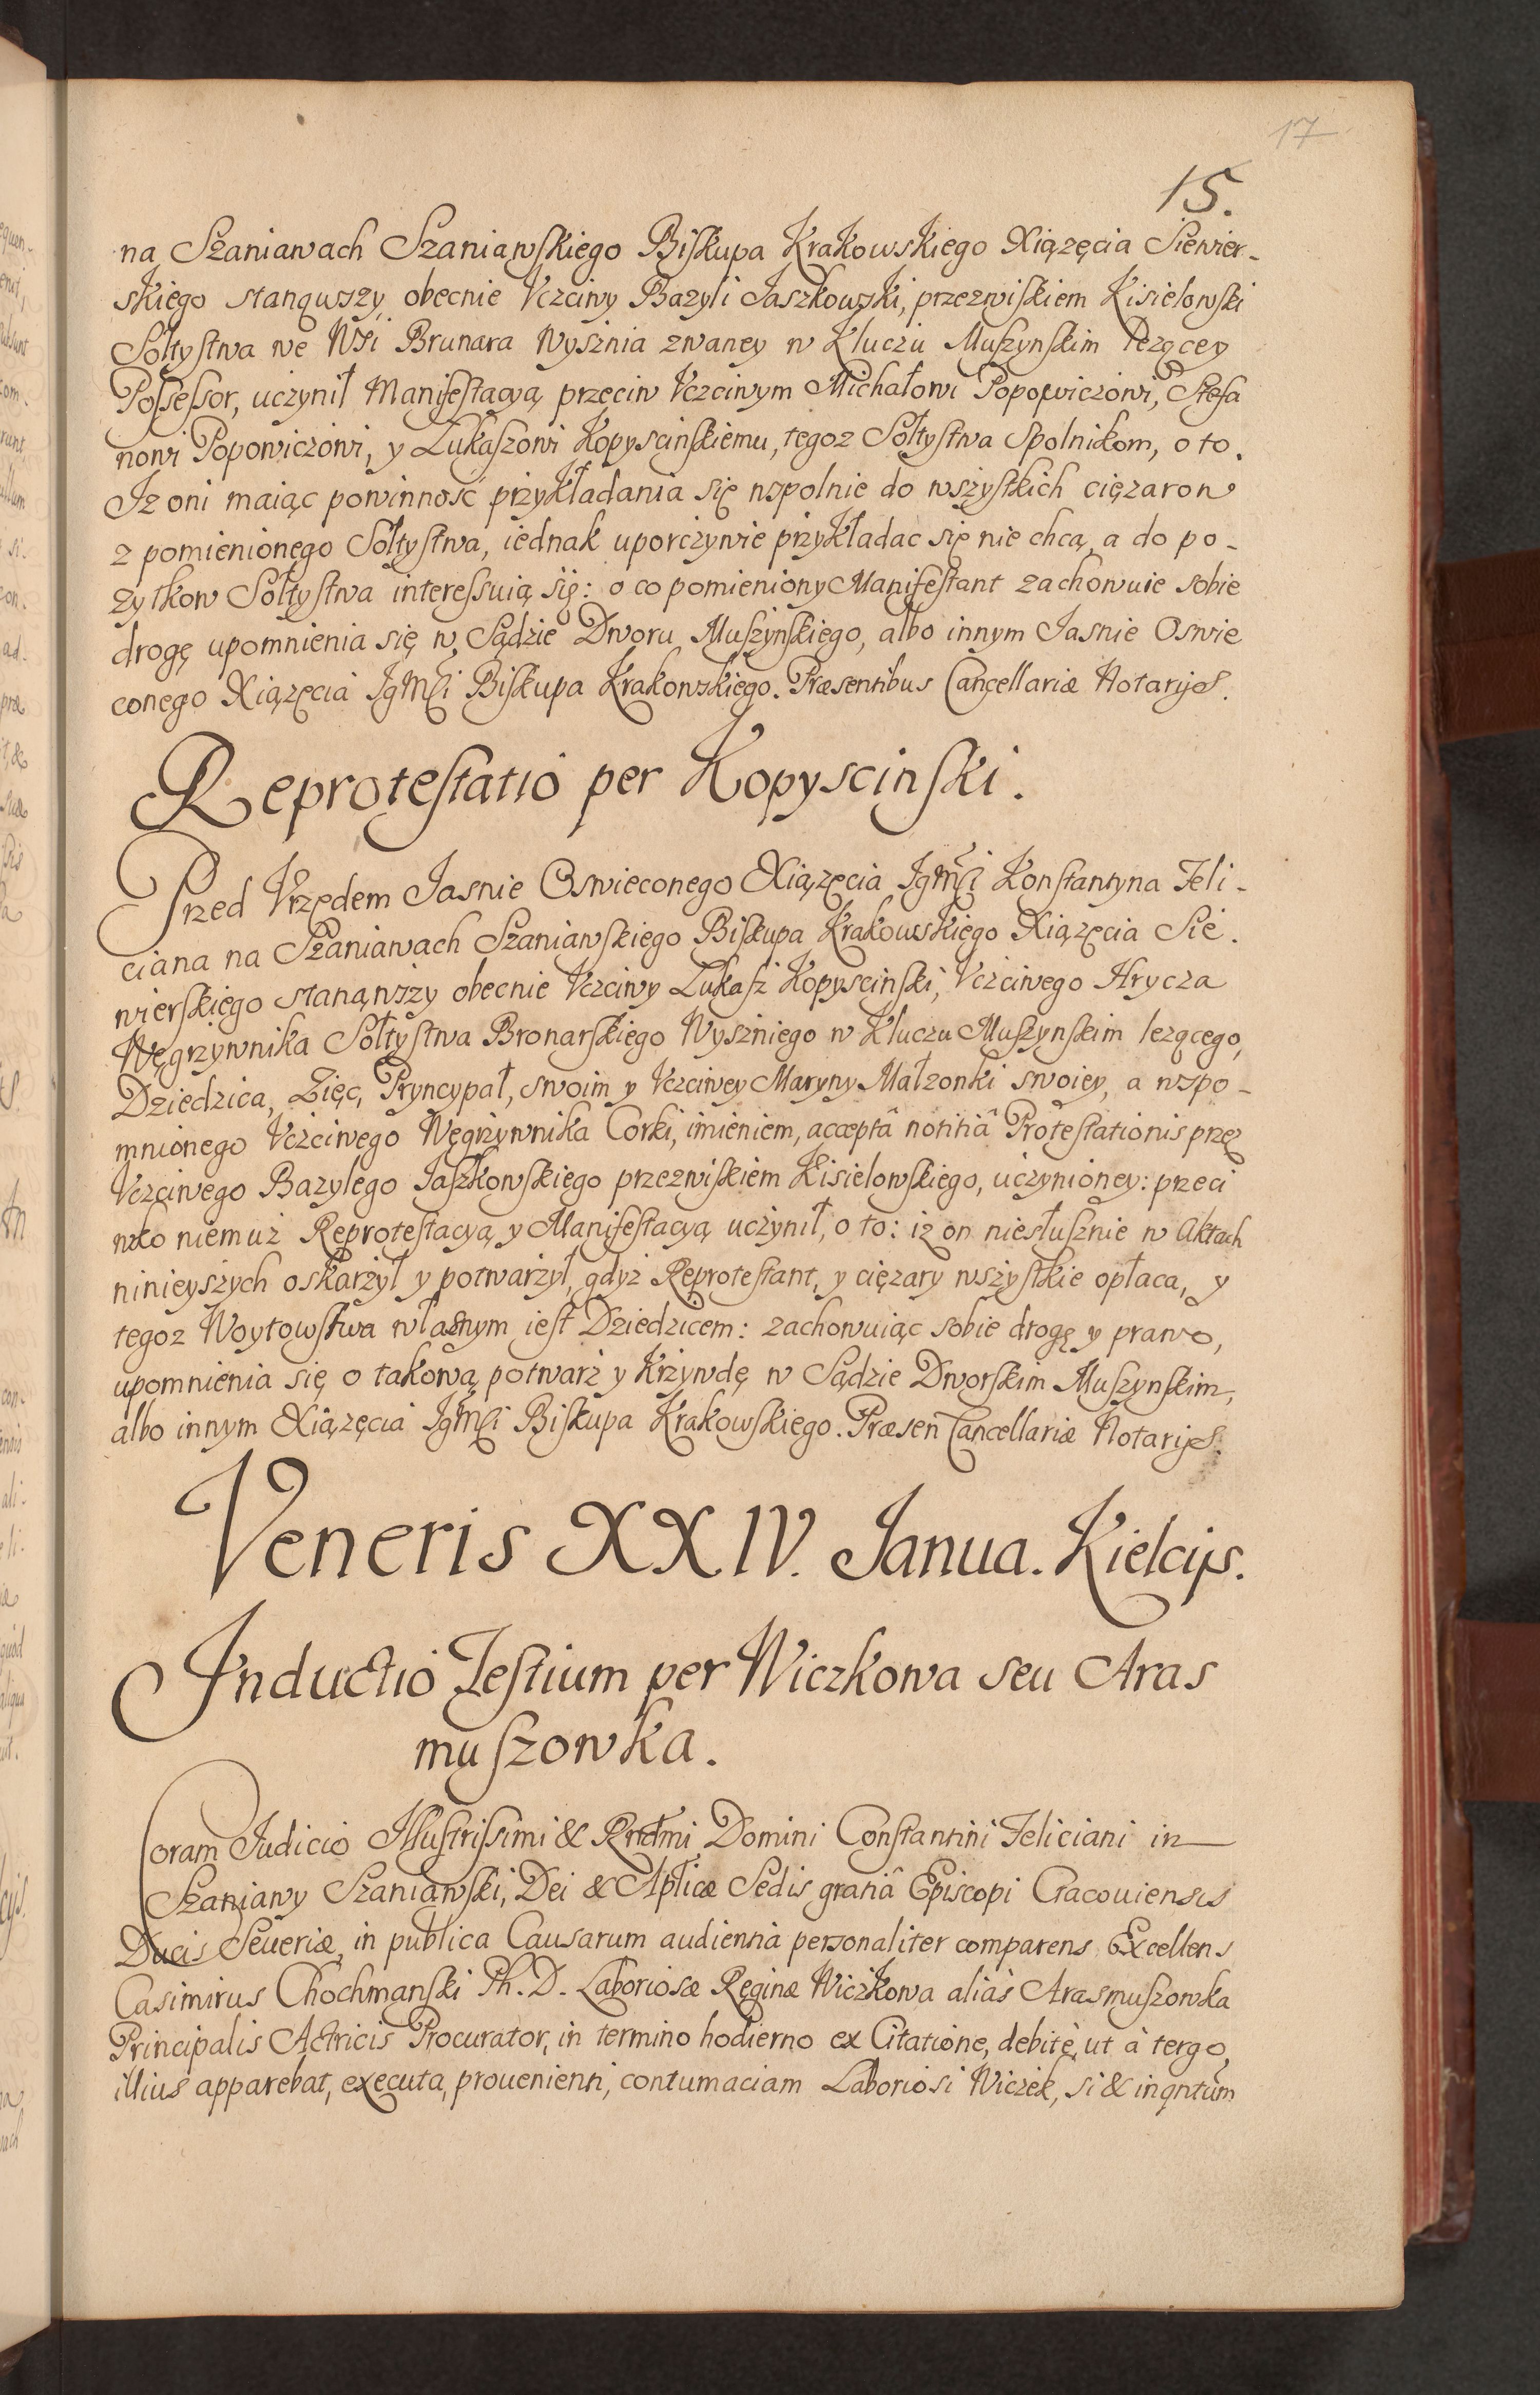 17
15.
na Szaniawach Szaniawskiego Biskupa Krakowskiego Xiązęcia Siewier-
skiego stanąwszy obecnie Vczciwy Bazyli Jaszkowski, przezwiskiem Kisielowski
Sołtystwa we Wsi Brunara Wysznia zwaney w Kluczu Muszynskim lezącey
Possessor, uczynił Manifestacyą przeciw Vczciwym Michałowi Popowiczowi, Stefa
nowi Popowiczowi, y Łukaszowi Kopyscinskiemu, tegoz Sołtystwa Spolnikom, o to.
Iz oni maiąc powinność przykładania się wspolnie do wszystkich cięzarow
z pomienionego Sołtystwa, iednak uporczywie przykładac się nie chcą, a do po-
zytkow Sołtystwa interessuią się: o co pomieniony Manifestant zachowuie sobie
drogę upomnienia się w Sądzie Dworu Muszynskiego, albo innym Jasnie Oswie
conego Xiązęcia IgMSi Biskupa Krakowskiego. Præsentibus Cancellariæ Notarijs.
Reprotestatio per Kopyscinski.
Przed Vrzędem Jasnie Oswieconego Xiązęcia IgMSi Konstantyna Feli-
ciana na Szaniawach Szaniawskiego Biskupa Krakowskiego Xiązęcia Sie.
wierskiego stanąwszy obecnie Vczciwy Łukasz Kopyscinski, Vczciwego Hrycza
Węgrzywnika Sołtystwa Bronarskiego Wyszniego w Kluczu Muszynskim lezącego,
Dziedzica, Zięc, Pryncypał, swoim y Vczciwey Maryny Małzonki swoiey, a wspo-
mnionego Vczciwego Węgrzywnika Corki, imieniem, acceptâ notitiâ Protestationis prze
Vczciwego Bazylego Jaszkowskiego przezwiskiem Kisielowskiego, uczynioney: przeci
wko niemuz Reprotestacyą y Manifestacyą uczynił, o to: iz on niesłusznie w Aktach
ninieyszych oskarzył y potwarzył, gdyz Reprotestant, y cięzary wszystkie opłaca, y
tegoz Woytowstwa własnym iest Dziedzicem: zachowuiąc sobie drogę y prawo,
upomnienia się o takową potwarz y Krzywdę w Sądzie Dworskim Muszynskim,
albo innym Xiązęcia IgMSi Biskupa Krakowskiego. Præsen Cancellariæ Notarijs.
Veneris XXIV. Janua. Kielcijs.
Inductio Testium per Wiczkowa seu Aras
muszowka.
Coram Judicio Illustrissimi & Rndmi Domini Constantini Feliciani in
Szaniawy Szaniawski, Dei & Aplicæ Sedis gratiâ Episcopi Cracouiensis
Ducis Seueriæ, in publica Causarum audientia personaliter comparens Excellens
Casimirus Chochmanski Ph. D. Laboriosæ Reginæ Wiczkowa alias Arasmuszowka
Principalis Actricis Procurator, in termino hodierno ex Citatione, debitè, ut à tergo,
illius apparebat, executa, prouenienti, contumaciam Laboriosi Wiczek, si & inqntùm